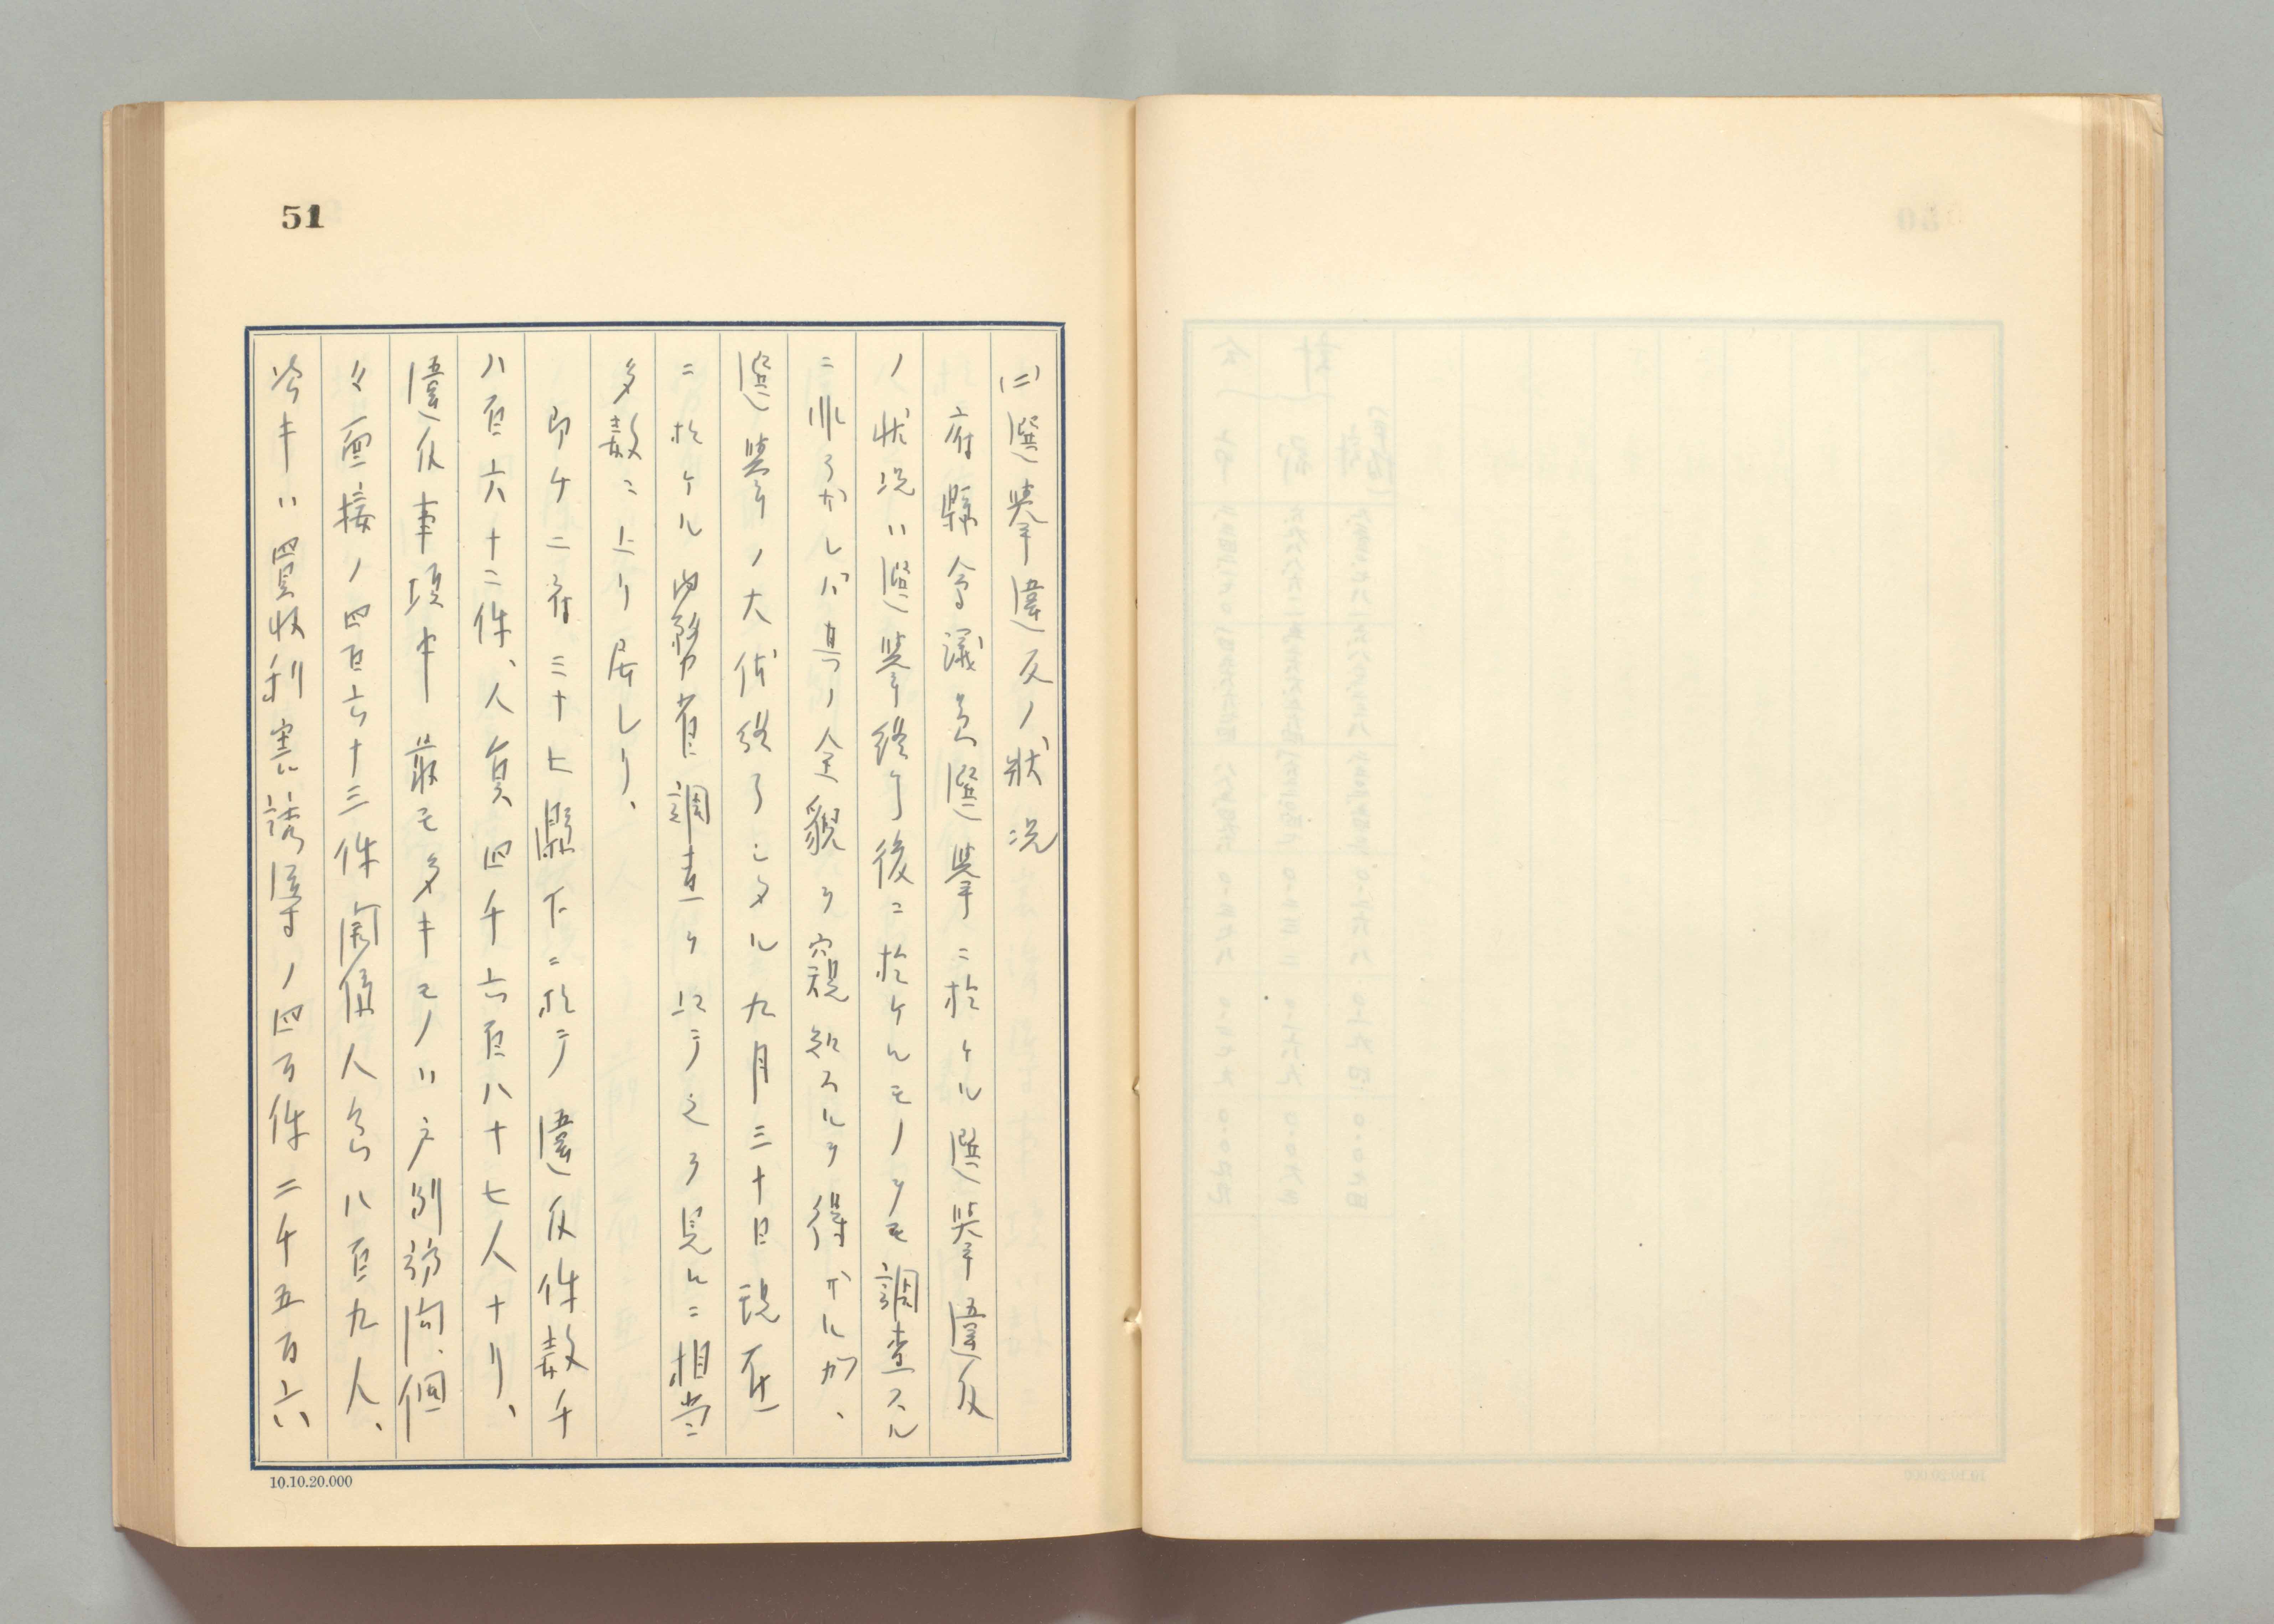 51
(二)選挙違反ノ状況
府縣会議員選挙ニ於ケル選挙違反
ノ状況ハ選挙終了後ニ於ケルモノヲモ調査スル
ニ非ラザレバ其ノ全貌ヲ窺知スルヲ得ザルガ、
選挙ノ大体終了シタル九月三十日現在
ニ於ケル内務省調査ケ依テ之ヲ見ルニ相当
多数ニ上リ居レリ、
即チ二府三十七縣下ニ於テ違反件数千
八百六十二件、人員四千六百八十七人ナリ、
違反事項中最モ多キモノハ戸別訪問、個
々面接ノ四百六十三件関係人員八百九人、
次キハ買収利害誘導ノ四百件二千五百六
10.10.20.000